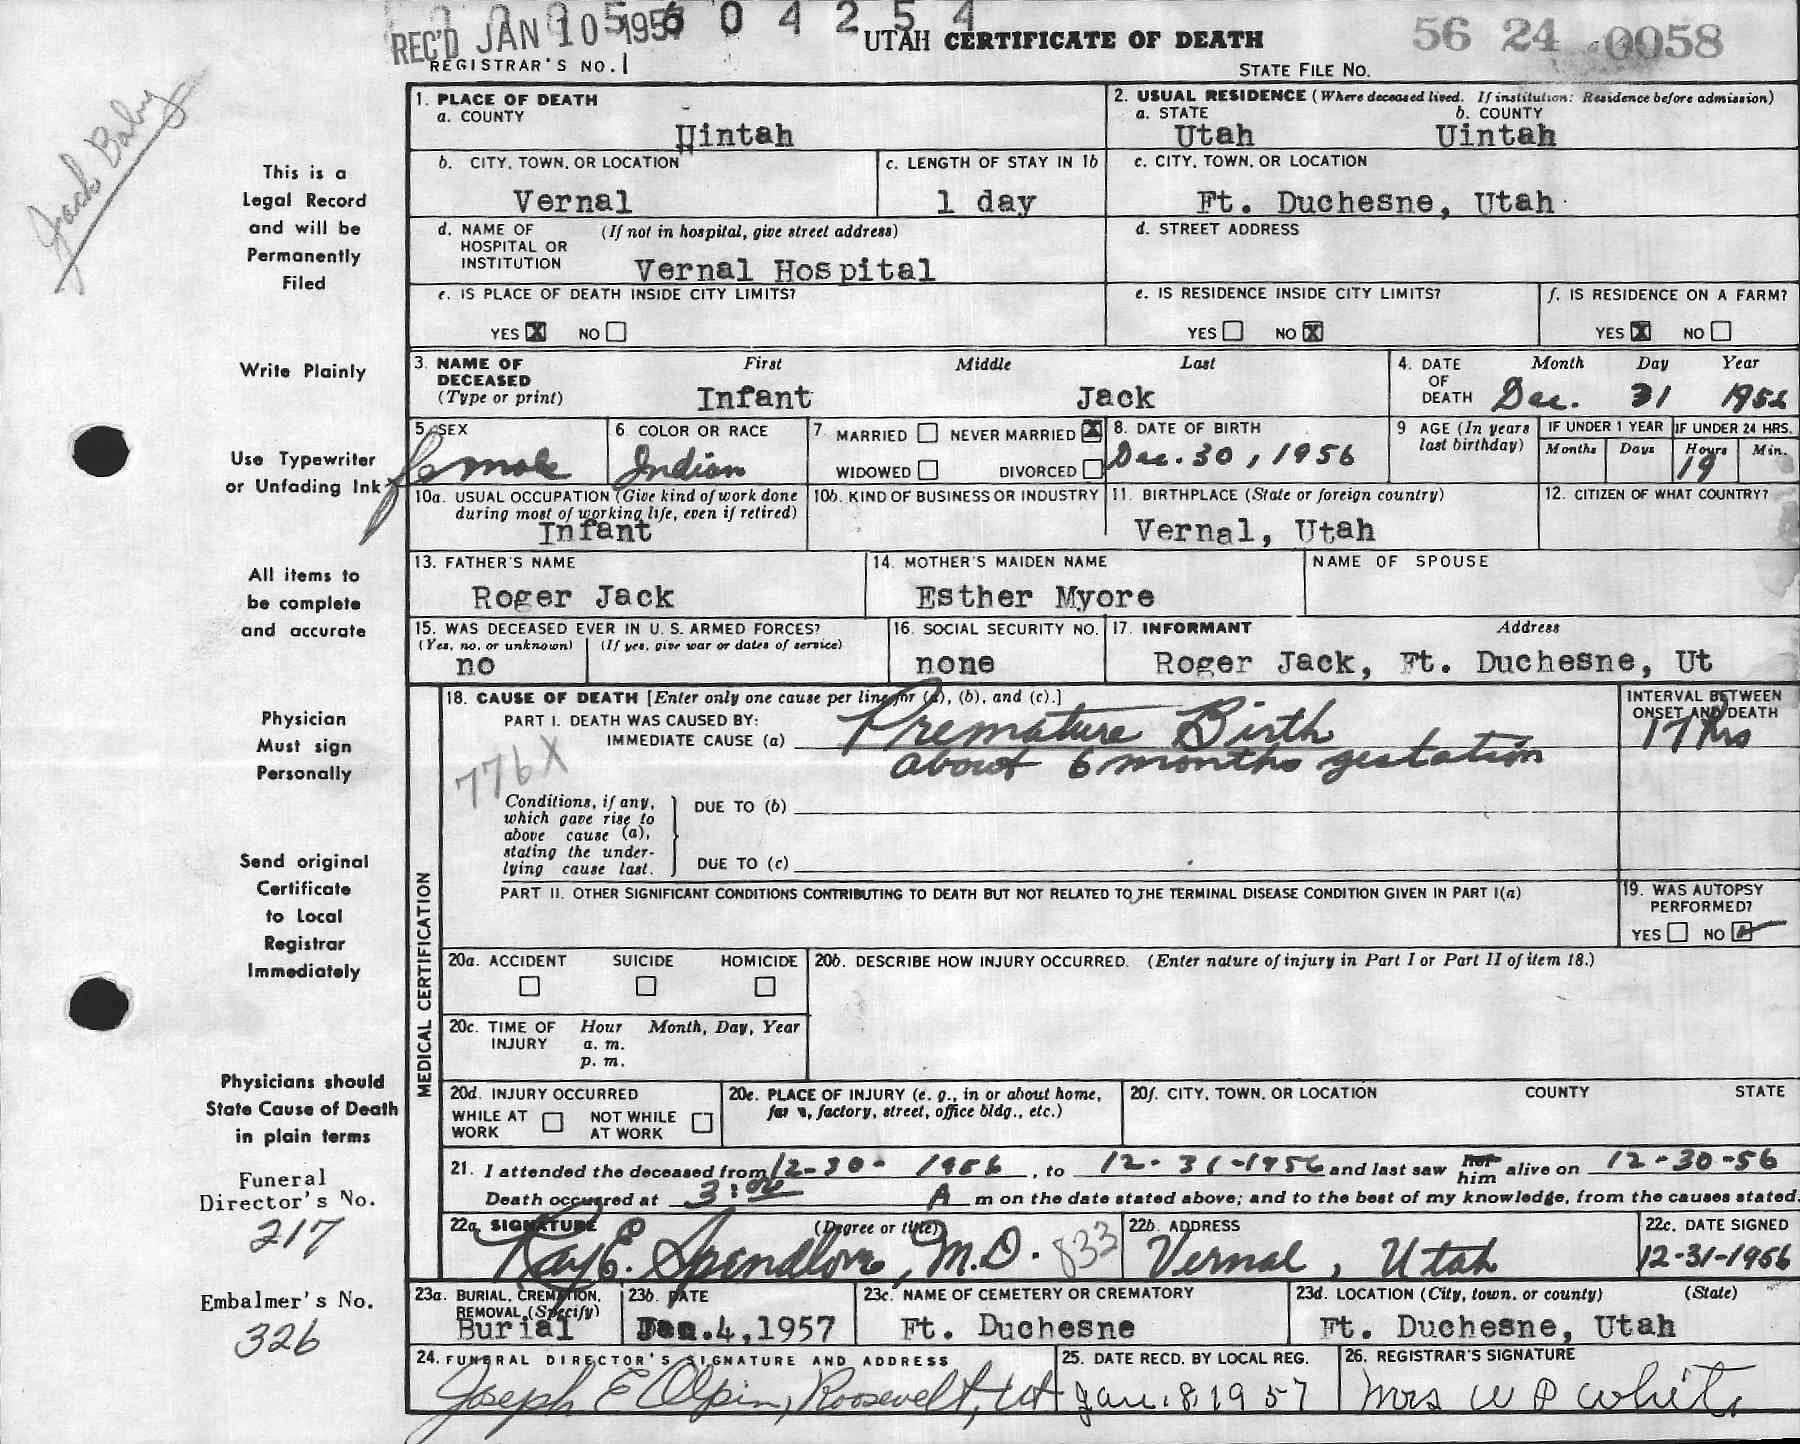 REC'D JAN 10 1957
0 4 2 5 4
UTAH CERTIFICATE OF DEATH
56 24 0058
REGISTRAR'S NO. 1
STATE FILE NO.
Jack Baby
1. PLACE OF DEATH
a. COUNTY
Uintah
2. USUAL RESIDENCE (Where deceased lived. If institution: Residence before admission)
a. STATE b. COUNTY
Utah Uintah
b. CITY, TOWN, OR LOCATION
Vernal
c. LENGTH OF STAY IN 1b
1 day
c. CITY, TOWN, OR LOCATION
Ft. Duchesne, Utah
d. NAME OF HOSPITAL OR INSTITUTION (If not in hospital, give street address)
Vernal Hospital
d. STREET ADDRESS
e. IS PLACE OF DEATH INSIDE CITY LIMITS?
YES X NO
e. IS RESIDENCE INSIDE CITY LIMITS?
YES NO X
f. IS RESIDENCE ON A FARM?
YES X NO
3. NAME OF DECEASED (Type or print)
First Middle Last
Infant Jack
4. DATE OF DEATH Month Day Year
Dec. 31 1956
5. SEX
female
6. COLOR OR RACE
Indian
7. MARRIED NEVER MARRIED X
WIDOWED DIVORCED
8. DATE OF BIRTH
Dec. 30, 1956
9. AGE (In years last birthday)
IF UNDER 1 YEAR
Months Days
IF UNDER 24 HRS.
Hours Min.
19
10a. USUAL OCCUPATION (Give kind of work done during most of working life, even if retired)
Infant
10b. KIND OF BUSINESS OR INDUSTRY
11. BIRTHPLACE (State or foreign country)
Vernal, Utah
12. CITIZEN OF WHAT COUNTRY?
13. FATHER'S NAME
Roger Jack
14. MOTHER'S MAIDEN NAME
Esther Myore
NAME OF SPOUSE
15. WAS DECEASED EVER IN U. S. ARMED FORCES?
(Yes, no, or unknown) (If yes, give war or dates of service)
no
16. SOCIAL SECURITY NO.
none
17. INFORMANT Address
Roger Jack, Ft. Duchesne, Ut
MEDICAL CERTIFICATION
18. CAUSE OF DEATH [Enter only one cause per line for (a), (b), and (c).]
PART I. DEATH WAS CAUSED BY:
IMMEDIATE CAUSE (a) Premature Birth
about 6 months gestation
INTERVAL BETWEEN ONSET AND DEATH
17 hrs
776X
Conditions, if any, which gave rise to above cause (a), stating the underlying cause last.
DUE TO (b)
DUE TO (c)
PART II. OTHER SIGNIFICANT CONDITIONS CONTRIBUTING TO DEATH BUT NOT RELATED TO THE TERMINAL DISEASE CONDITION GIVEN IN PART I(a)
19. WAS AUTOPSY PERFORMED?
YES NO
20a. ACCIDENT SUICIDE HOMICIDE
20b. DESCRIBE HOW INJURY OCCURRED. (Enter nature of injury in Part I or Part II of item 18.)
20c. TIME OF INJURY Hour Month, Day, Year
a. m.
p. m.
20d. INJURY OCCURRED
WHILE AT WORK NOT WHILE AT WORK
20e. PLACE OF INJURY (e. g., in or about home, farm, factory, street, office bldg., etc.)
20f. CITY, TOWN, OR LOCATION COUNTY STATE
21. I attended the deceased from 12-30-1956, to 12-31-1956 and last saw her him alive on 12-30-56
Death occurred at 3:00 A m on the date stated above; and to the best of my knowledge, from the causes stated.
22a. SIGNATURE (Degree or title)
Ray E. Spendlove, M.D. 833
22b. ADDRESS
Vernal, Utah
22c. DATE SIGNED
12-31-1956
23a. BURIAL, CREMATION, REMOVAL (Specify)
Burial
23b. DATE
Jan. 4, 1957
23c. NAME OF CEMETERY OR CREMATORY
Ft. Duchesne
23d. LOCATION (City, town, or county) (State)
Ft. Duchesne, Utah
24. FUNERAL DIRECTOR'S SIGNATURE AND ADDRESS
Joseph E Olpin, Roosevelt, Ut
25. DATE RECD. BY LOCAL REG.
Jan. 8, 1957
26. REGISTRAR'S SIGNATURE
Mrs W P White
This is a
Legal Record
and will be
Permanently
Filed
Write Plainly
Use Typewriter
or Unfading Ink
All items to
be complete
and accurate
Physician
Must sign
Personally
Send original
Certificate
to Local
Registrar
Immediately
Physicians should
State Cause of Death
in plain terms
Funeral
Director's No.
217
Embalmer's No.
326